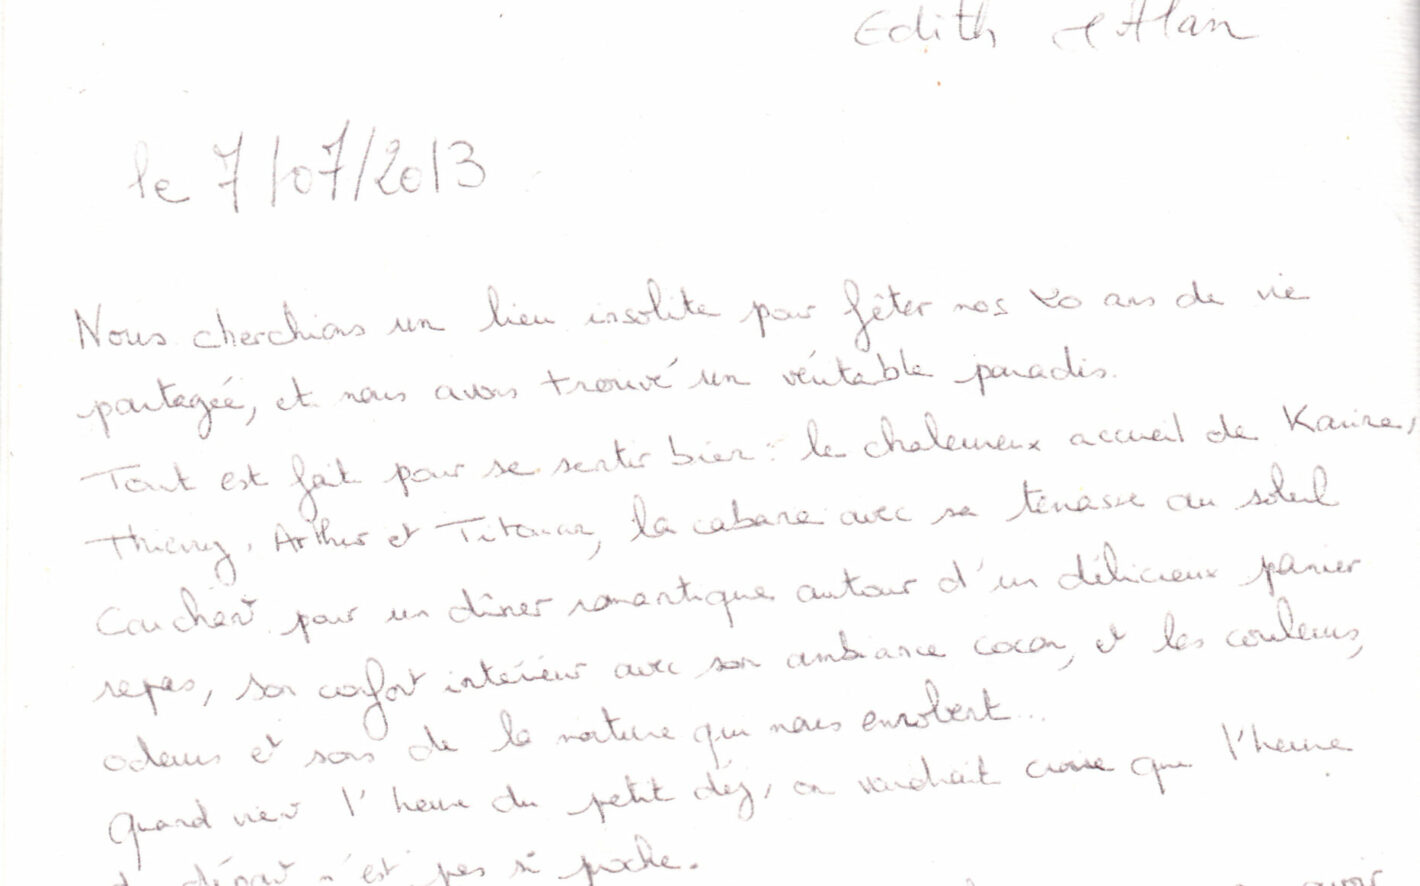 Edith et Alain
le 7/07/2013
Nous cherchions un lieu insolite pour fêter nos 20 ans de vie
partagée, et nous avons trouvé un véritable paradis.
Tout est fait pour se sentir bien : le chaleureux accueil de Karine,
Thierry, Arthur et Titouan, la cabane avec sa terrasse au soleil
couchant pour un dîner romantique autour d'un délicieux panier
repas, son confort intérieur avec son ambiance cocon, et les couleurs,
odeurs et sons de la nature qui nous enrobent...
Quand vient l'heure du petit déj, on voudrait croire que l'heure
du départ n'est pas si proche.
avoir